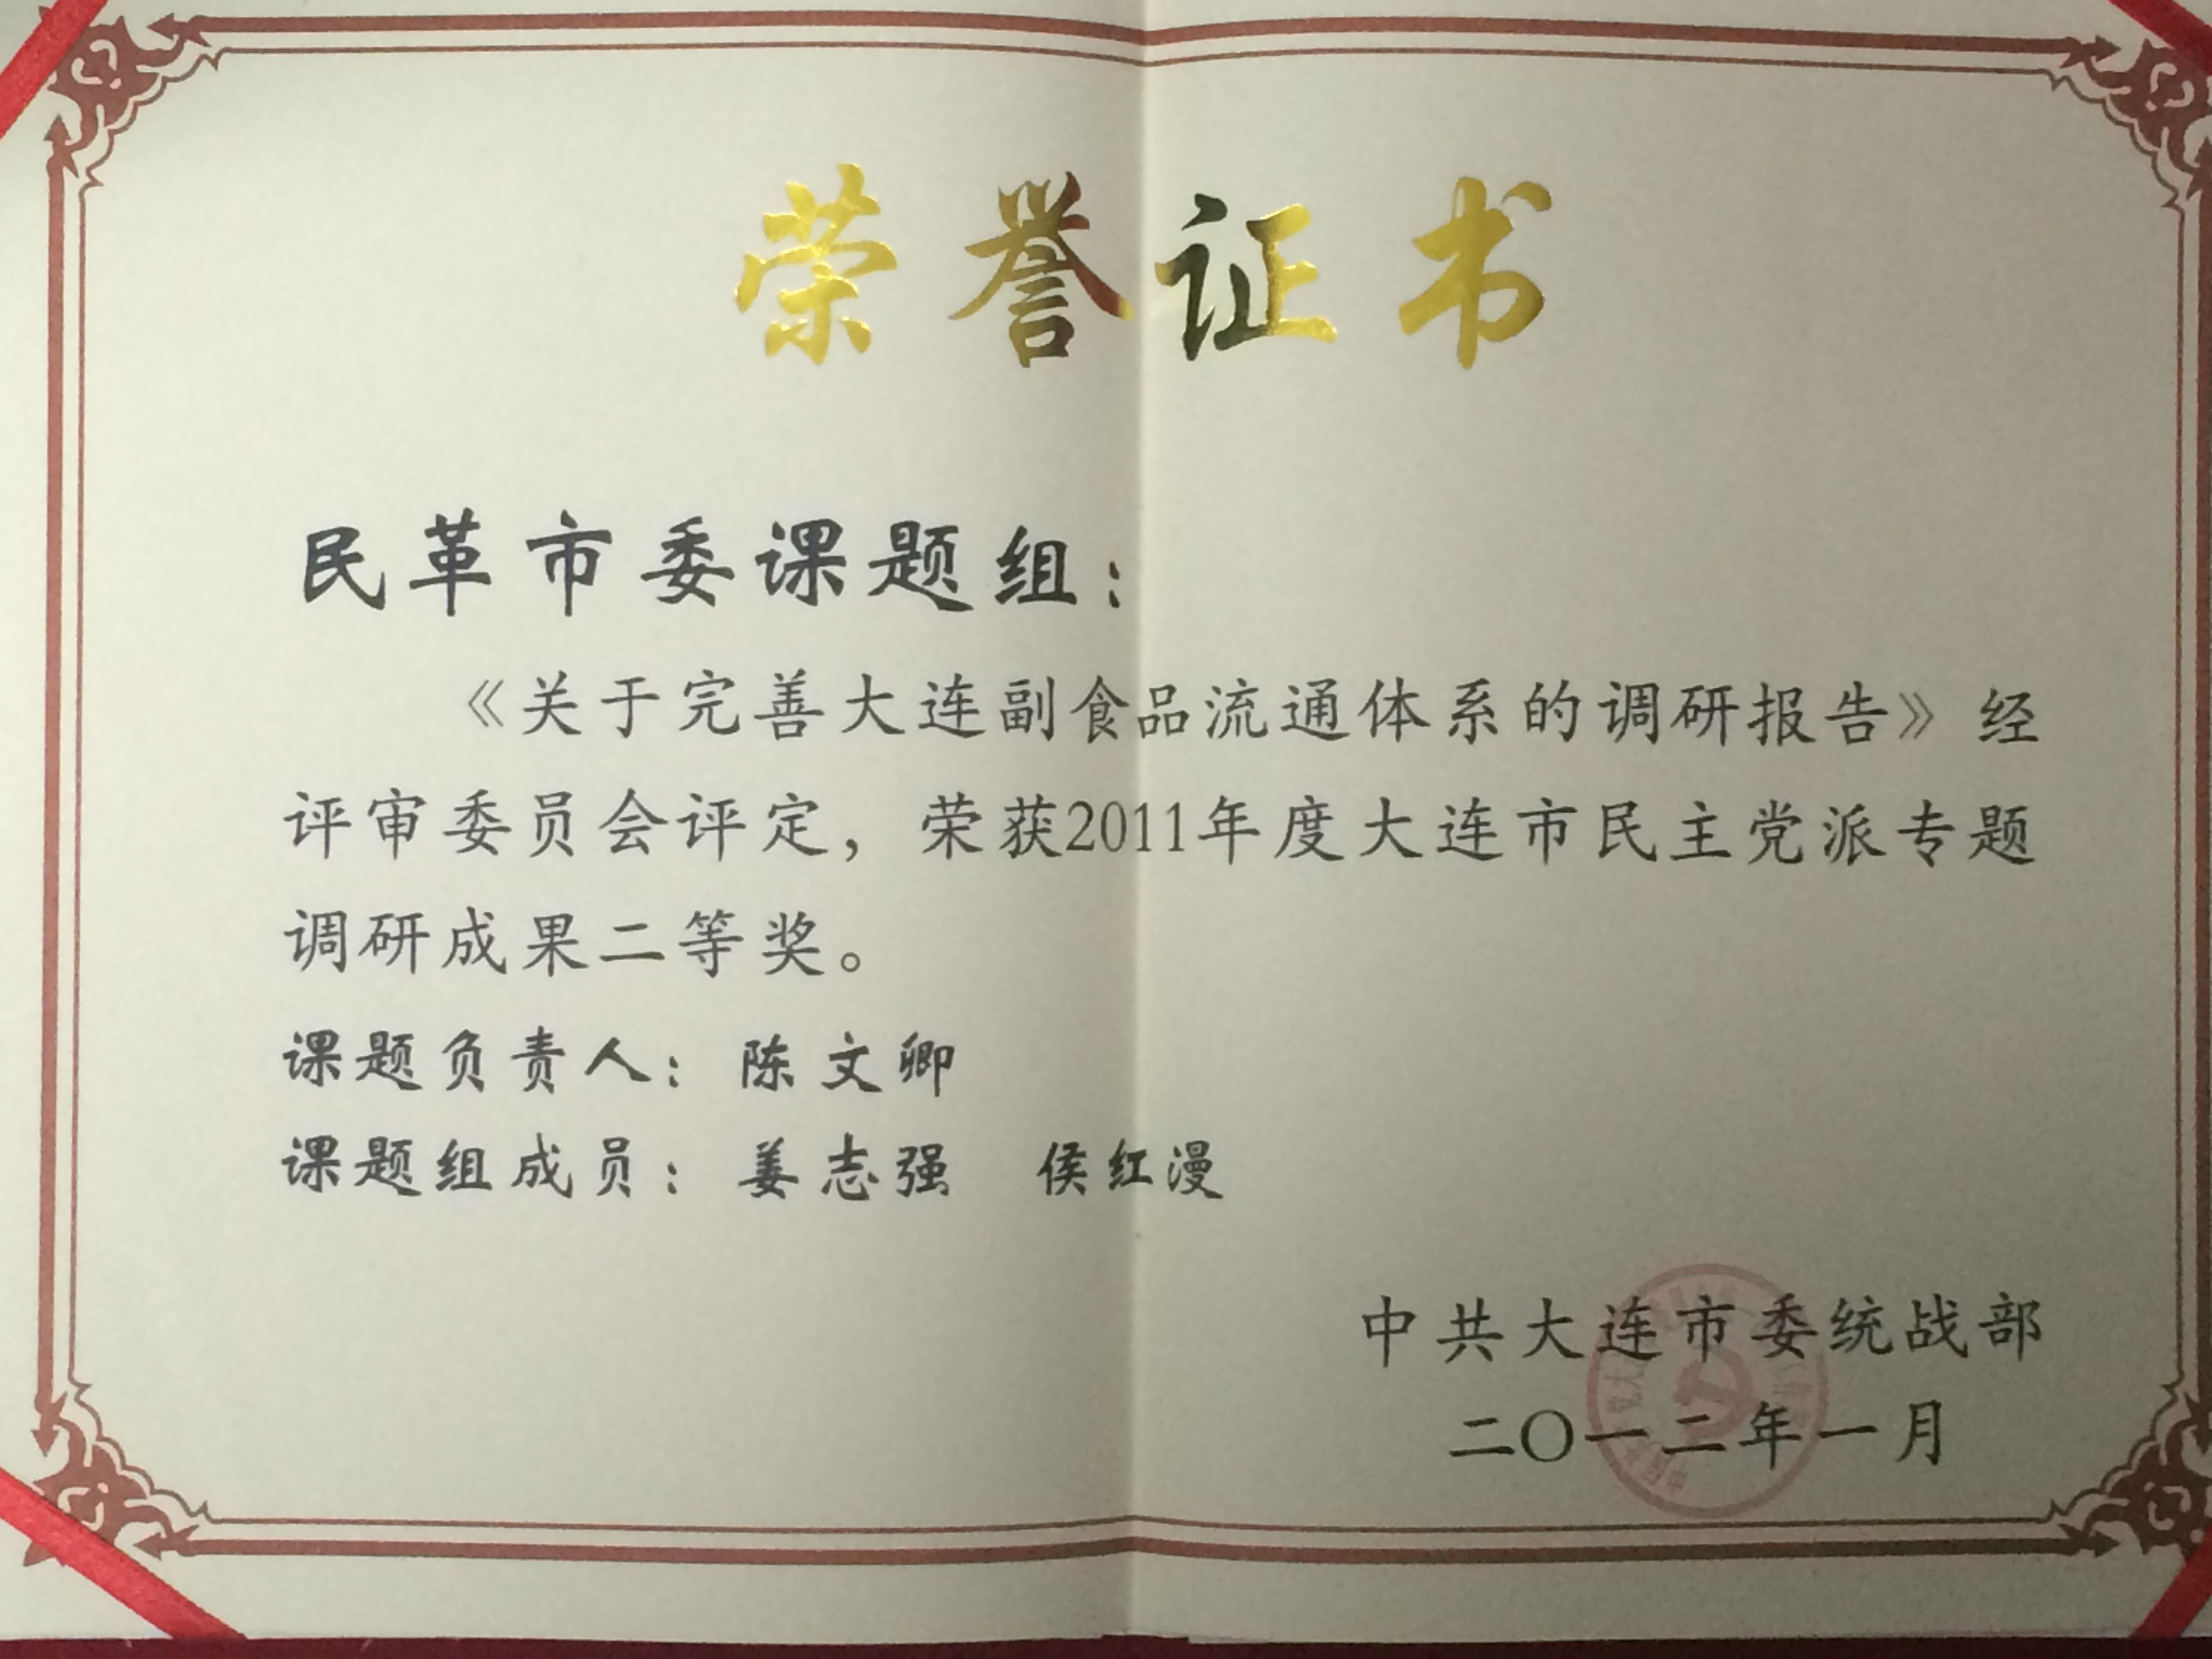 荣誉证书
民革市委课题组：
《关于完善大连副食品流通体系的调研报告》经
评审委员会评定，荣获2011年度大连市民主党派专题
调研成果二等奖。
课题负责人：陈文卿
课题组成员：姜志强 侯红漫
中共大连市委统战部
二〇一二年一月